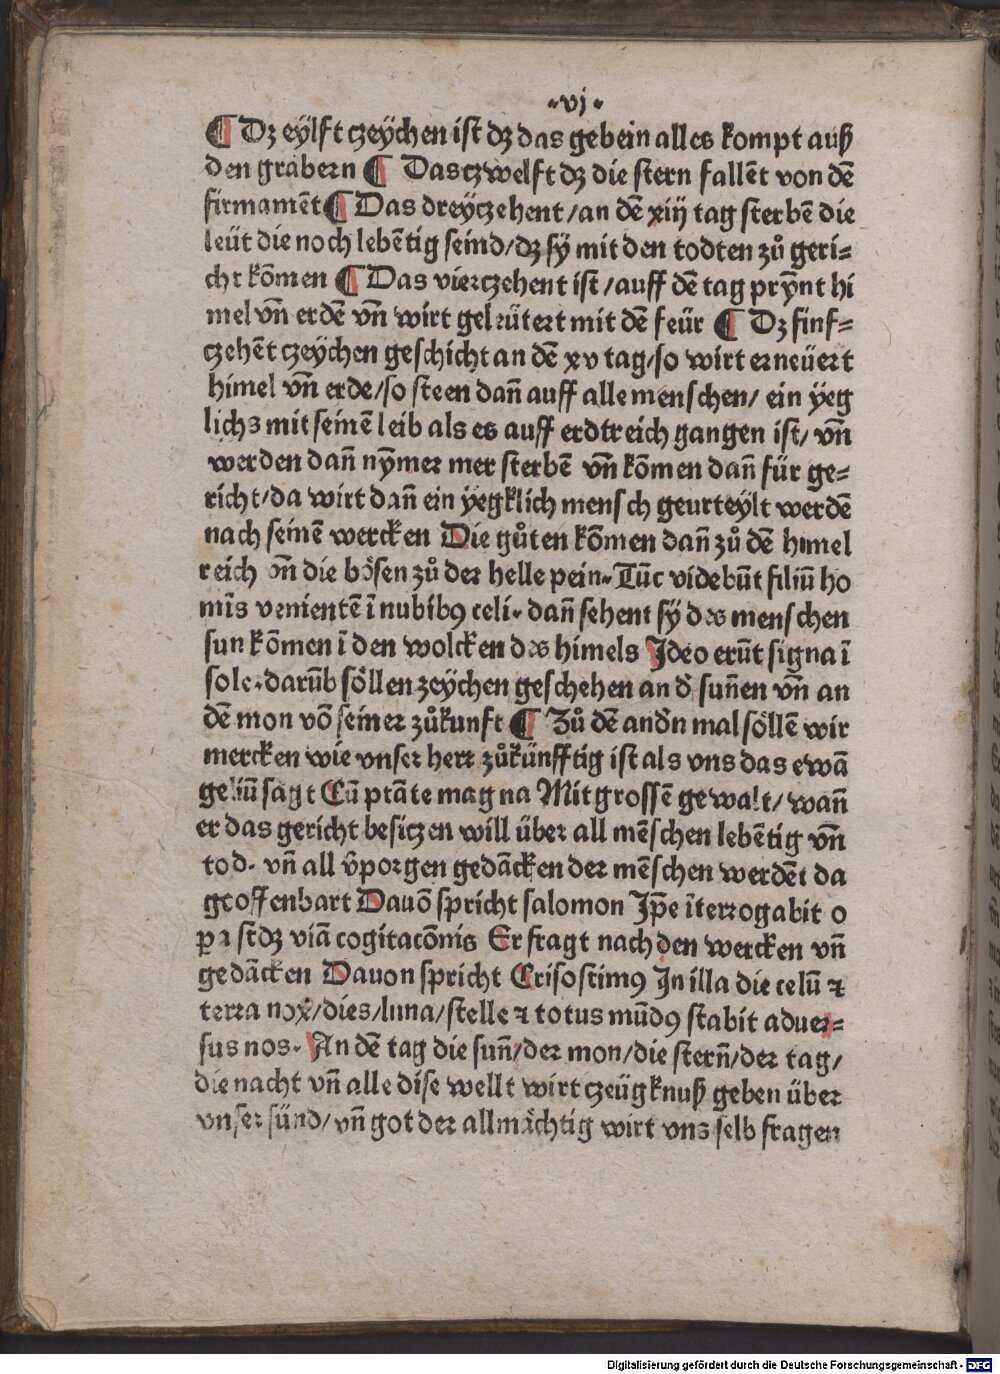 ·vj·
¶ Dz eÿlft czeÿchen ist dz das gebein alles kompt auß
den grabern ¶ Das czwelft dz die stern fallēt von dē
firmamēt ¶ Das dreÿczehent/an dē xiij tag sterbē die
leüt die noch lebētig seind/dz sÿ mit den todten zů geri=
cht kōmen ¶ Das vierczehent ist/auff dē tag prÿnt hi
mel vn̄ erdē vn̄ wirt geleütert mit dē feür ¶ Dz finf=
czehēt czeÿchen geschicht an dē xv tag/so wirt erneüert
himel vn̄ erde/so steen dan̄ auff alle menschen/ ein ÿeg
lichs mit seinē leib als es auff erdtreich gangen ist/ vn̄
werden dan̄ nÿmer mer sterbē vn̄ kōmen dan̄ für ge=
richt/da wirt dan̄ ein ÿegklich mensch geurteÿlt werdē
nach seinē wercken Die gůten kōmen dan̄ zů dē himel
reich vn̄ die bösen zů der helle pein. Tūc videbūt filiū ho
mīs venientē ī nubibꝰ celi. dan̄ sehent sÿ des menschen
sun kōmen ī den wolcken des himels Jdeo erūt signa ī
sole. darūb söllen zeÿchen geschehen an d̄ sun̄en vn̄ an
dē mon vō seiner zůkunft ¶ Zů dē andn̄ mal söllē wir
mercken wie vnser herr zůkünfftig ist als vns das ewā
geliū sagt Cū ptāte magna Mit grossē gewalt/ wan̄
er das gericht besiczen will über all mēschen lebētig vn̄
tod. vn̄ all v̄porgen gedäcken der mēschen werdēt da
geoffenbart Dauō spricht salomon Jp̄e īterrogabit o
ꝑa ꝛ stdz viā cogitacōnis Er fragt nach den wercken vn̄
gedäcken Dauon spricht Crisostimꝰ Jn illa die celū ꝛ
terra nox/dies/luna/stelle ꝛ totus mūdꝰ stabit aduer=
sus nos. An dē tag die sun̄/der mon/die stern̄/der tag/
die nacht vn̄ alle dise wellt wirt czeügknuß geben über
vnser sünd/ vn̄ got der allmächtig wirt vns selb fragen
Digitalisierung gefördert durch die Deutsche Forschungsgemeinschaft - DFG